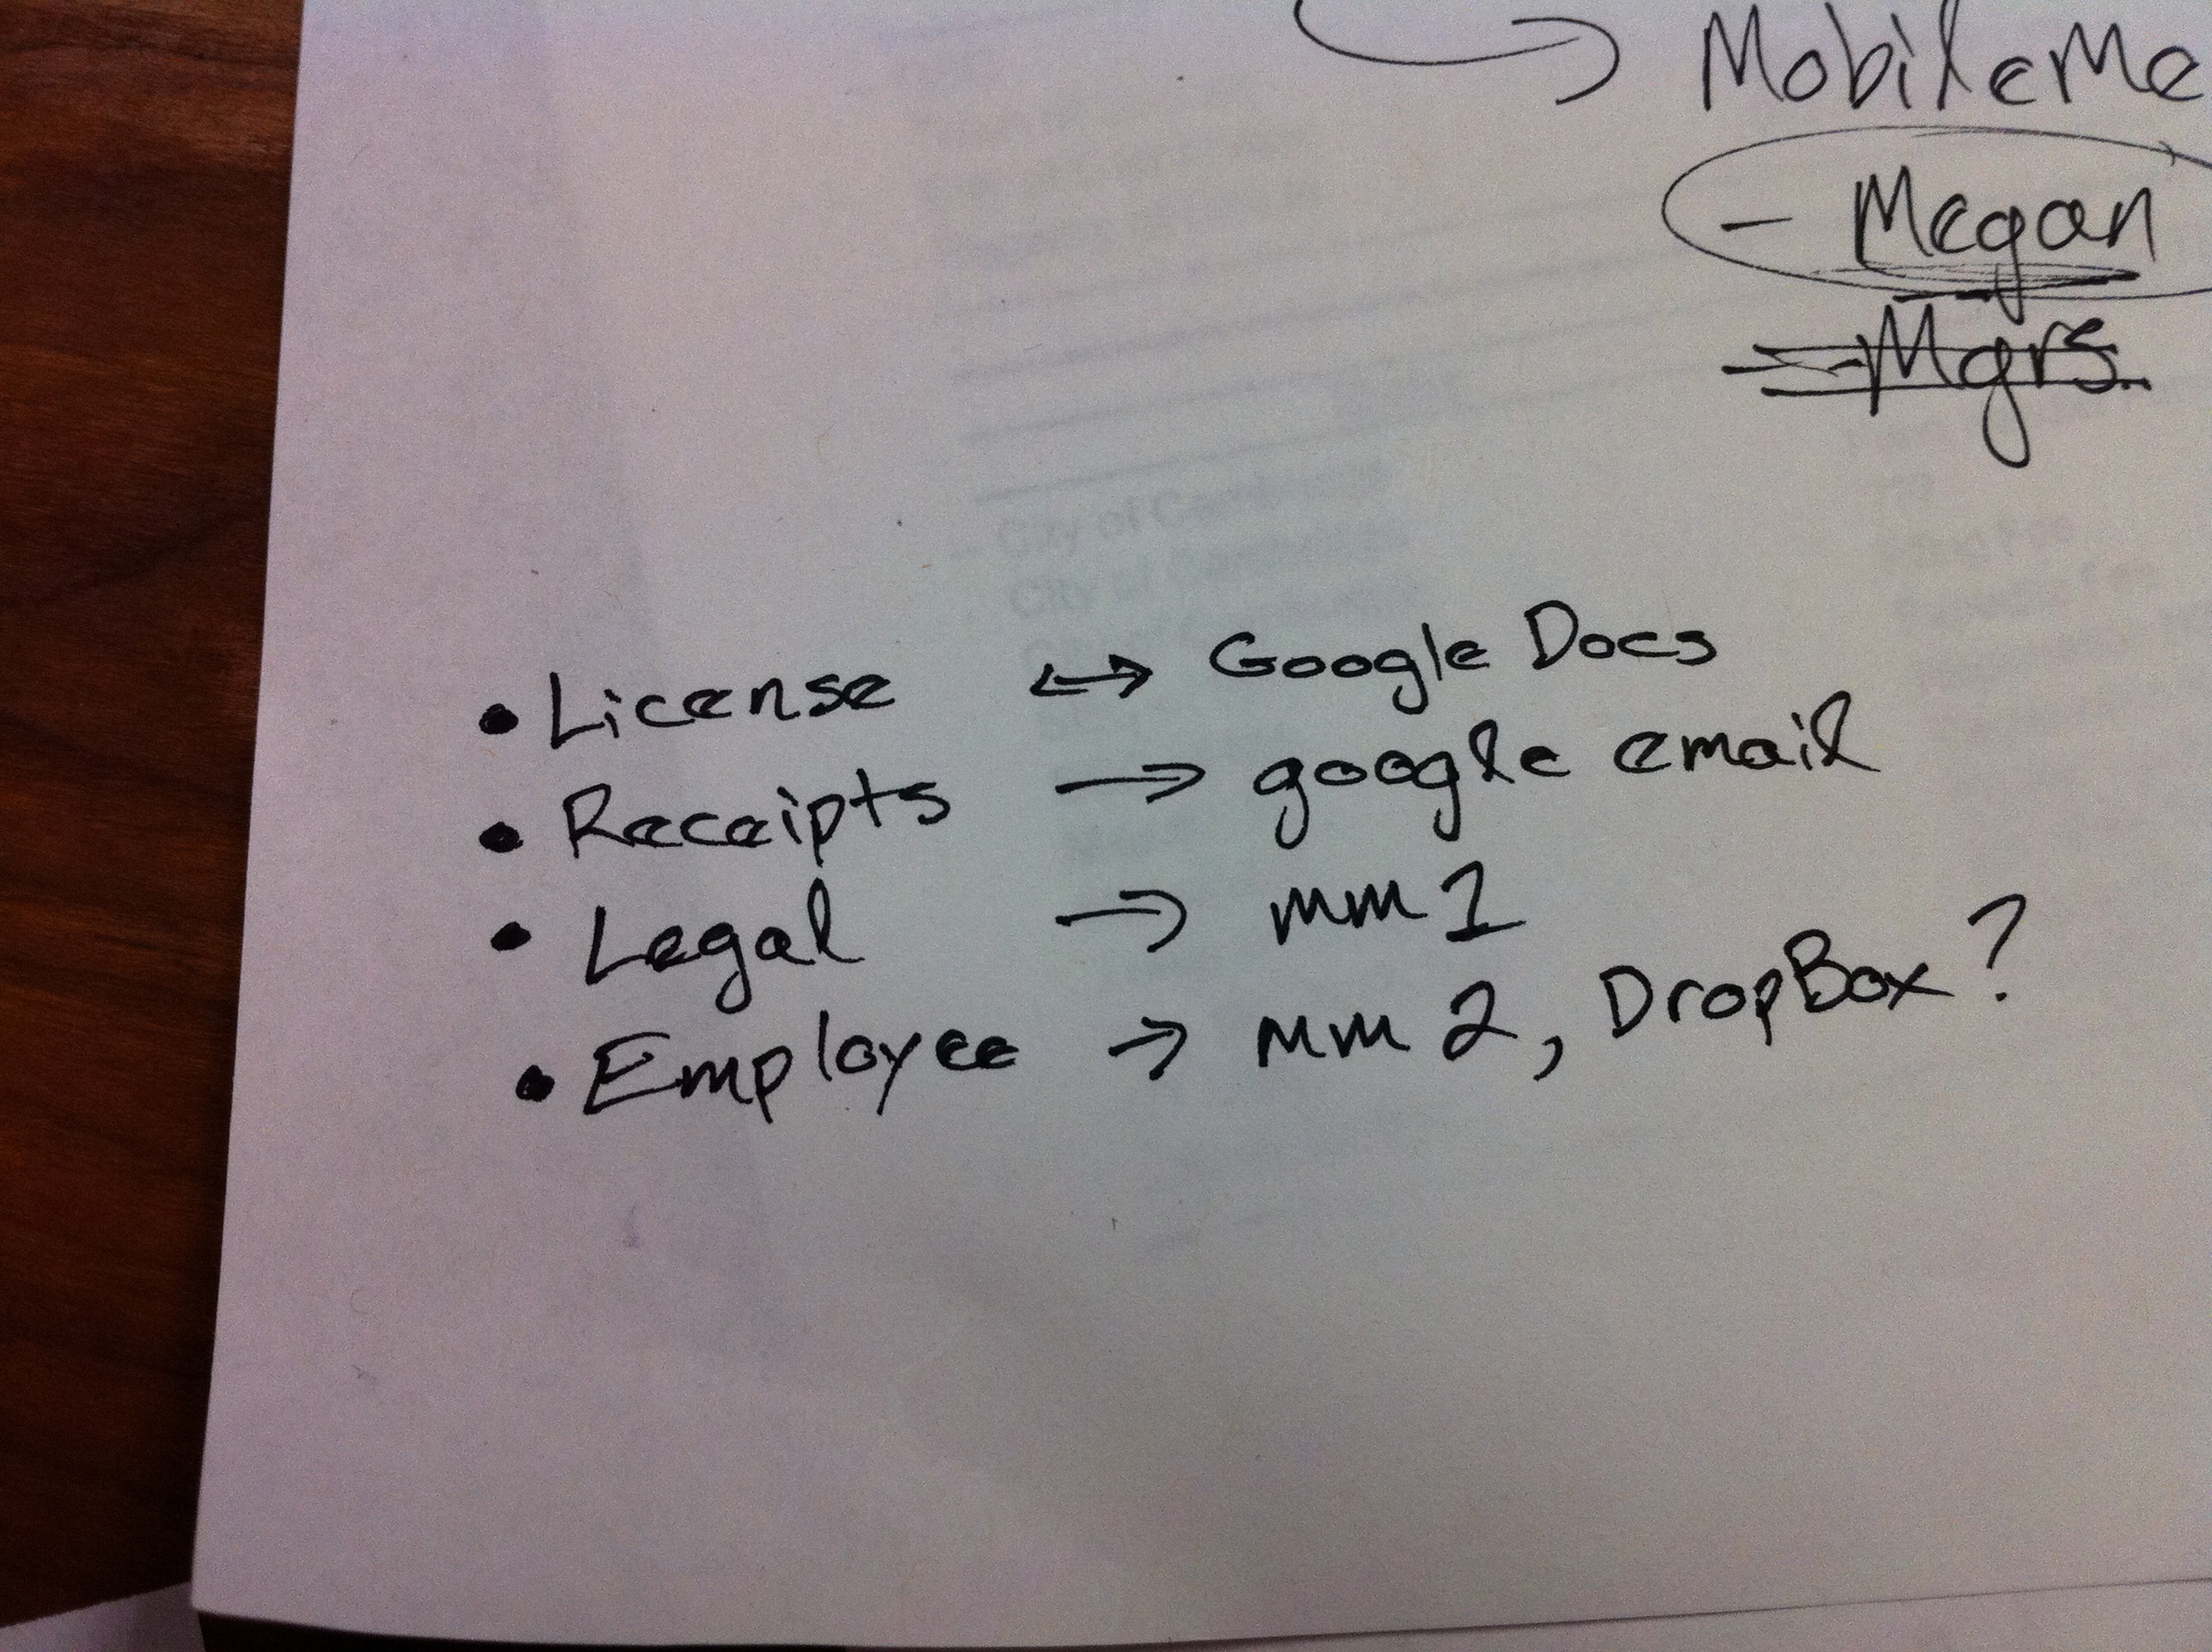 MobileMe
- Megan
- Mgrs.
• License ↔ Google Docs
• Receipts → google email
• Legal → mm 1
• Employee → mm 2, DropBox?
City of
City of